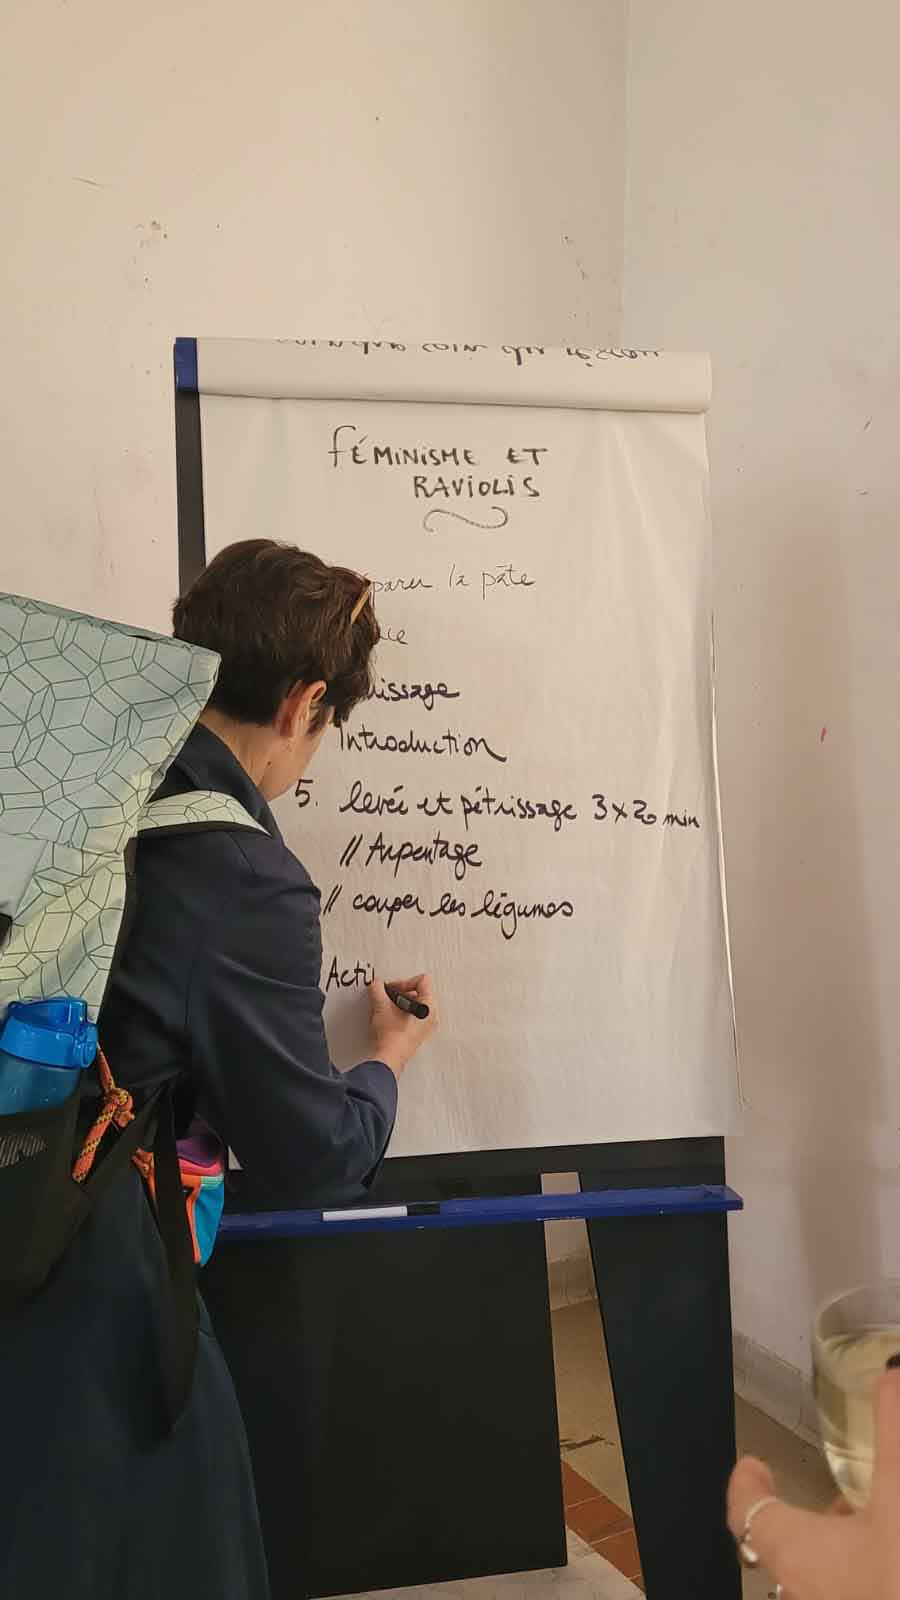 soin du réseau
fÉMINISME ET
RAVIOLIS
parer la pâte
Introduction
5. levée et pétrissage 3x20 min
// Arpentage
// couper les légumes
Acti